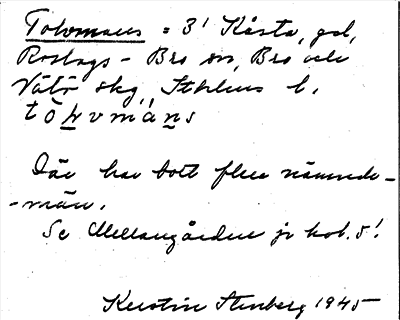 Tolvmans = 3¹ Kårsta, gd,
Roslags-Bro sn, Bro och
Vätö skg, Sthlms l.
tōlvmäns
Där har bott flera nämnde-
-män.
Se Mellangården jr kol. 5!
Kerstin Stenberg 1945